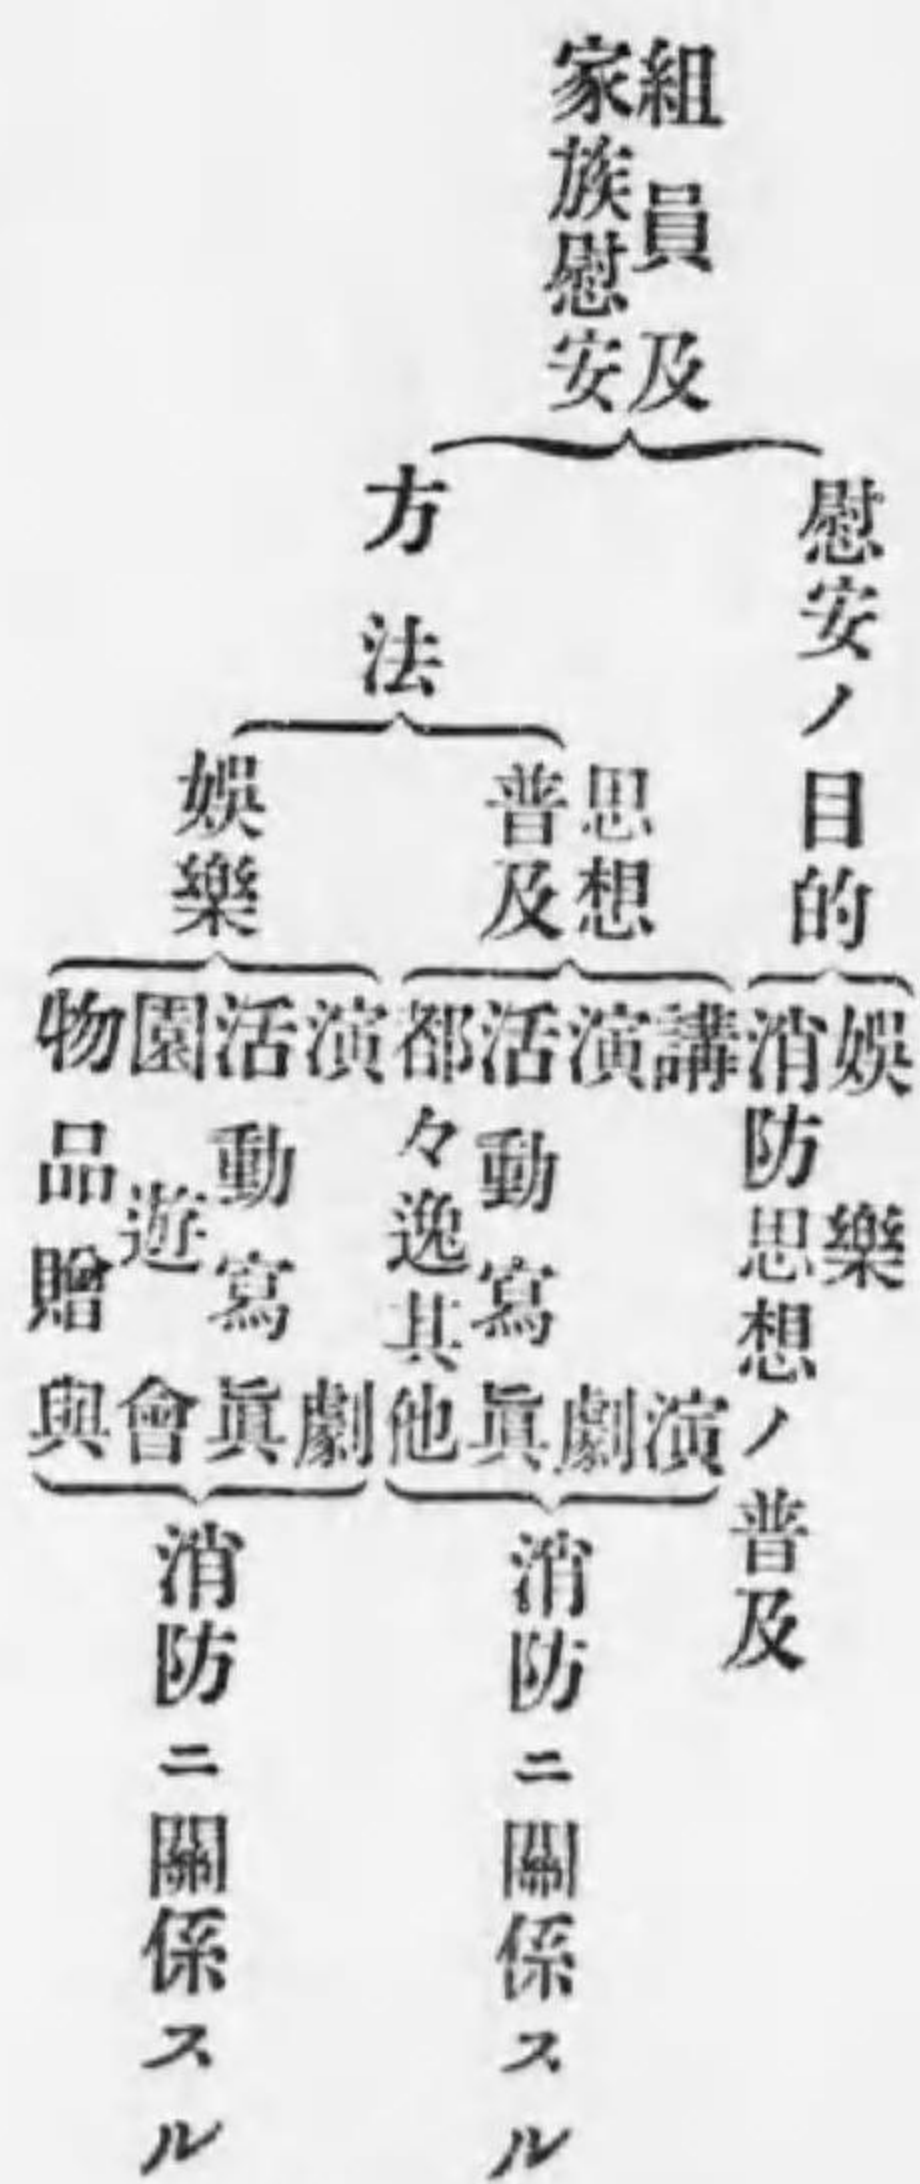 組員及
家族慰安
慰安ノ目的
娯樂
消防思想ノ普及
方法
思想
普及
講演
演劇
活動寫眞
都々逸其他
消防ニ關係スル
娯樂
演劇
活動寫眞
園遊會
物品贈與
消防ニ關係スル